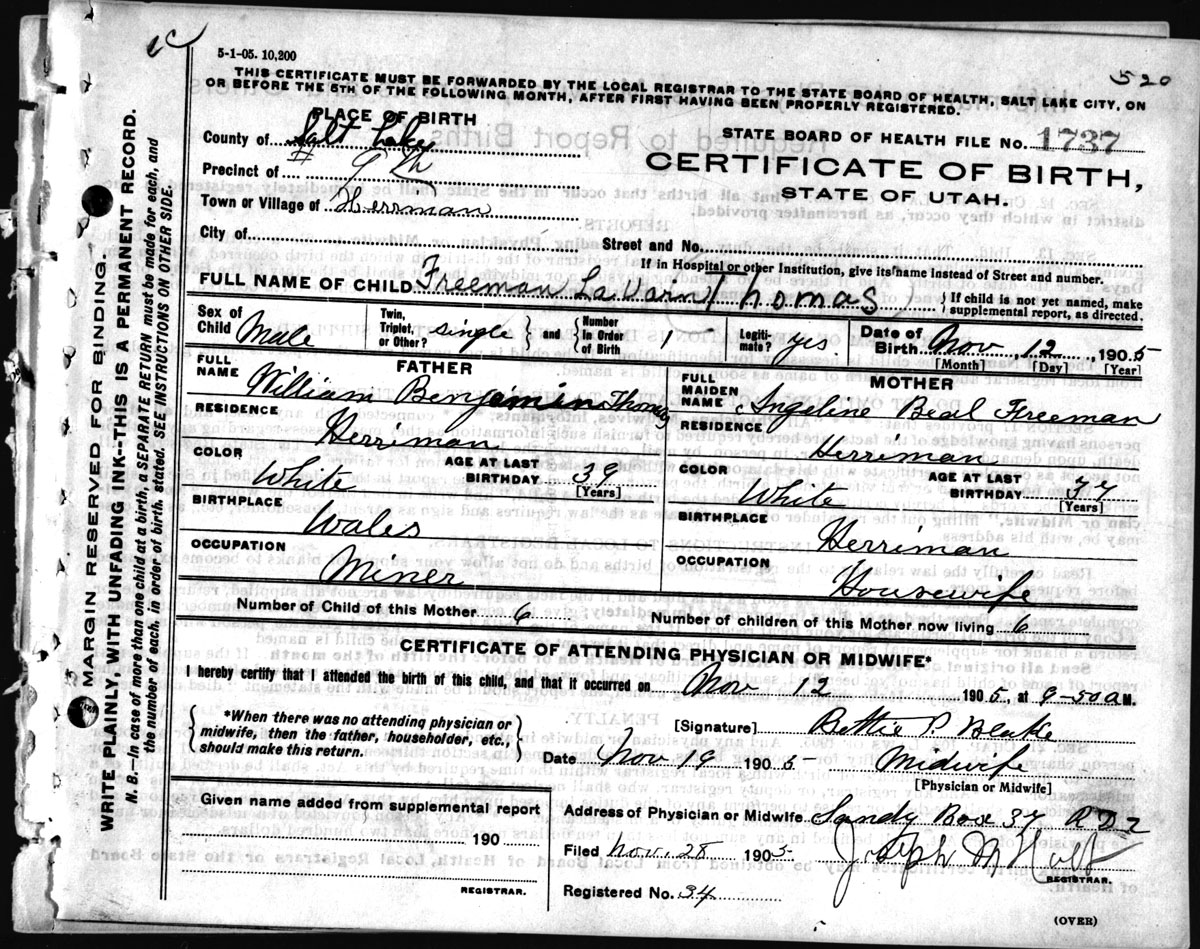 5-1-05. 10,200
520
THIS CERTIFICATE MUST BE FORWARDED BY THE LOCAL REGISTRAR TO THE STATE BOARD OF HEALTH, SALT LAKE CITY, ON
OR BEFORE THE 5TH OF THE FOLLOWING MONTH, AFTER FIRST HAVING BEEN PROPERLY REGISTERED.
PLACE OF BIRTH
County of Salt Lake
Precinct of # 9th
Town or Village of Herrman
City of
STATE BOARD OF HEALTH FILE No. 1737
CERTIFICATE OF BIRTH,
STATE OF UTAH.
Street and No.
If in Hospital or other Institution, give its name instead of Street and number.
FULL NAME OF CHILD Freeman La Vain (Thomas) } If child is not yet named, make supplemental report, as directed.
Sex of Child Male Twin, Triplet, or Other? single } and { Number In Order of Birth 1 Legiti-mate? yes Date of Birth Nov, 12, 1905
[Month] [Day] [Year]
FATHER
FULL NAME William Benjamin Thomas
RESIDENCE Herriman
COLOR White AGE AT LAST BIRTHDAY 39
[Years]
BIRTHPLACE Wales
OCCUPATION Miner
MOTHER
FULL MAIDEN NAME Angeline Beal Freeman
RESIDENCE Herriman
COLOR White AGE AT LAST BIRTHDAY 37
[Years]
BIRTHPLACE Herriman
OCCUPATION Housewife
Number of Child of this Mother 6 Number of children of this Mother now living 6
CERTIFICATE OF ATTENDING PHYSICIAN OR MIDWIFE*
I hereby certify that I attended the birth of this child, and that it occurred on Nov 12 1905, at 9-50 A M.
{ *When there was no attending physician or
midwife, then the father, householder, etc.,
should make this return. }
[Signature] Bettie P. Blake
Date Nov 19 1905 Midwife
[Physician or Midwife]
Given name added from supplemental report
190
REGISTRAR.
Address of Physician or Midwife Sandy Box 37 R D 2
Filed Nov. 28 1905 Joseph M Holt
REGISTRAR.
Registered No. 34
(OVER)
MARGIN RESERVED FOR BINDING.
WRITE PLAINLY, WITH UNFADING INK--THIS IS A PERMANENT RECORD.
N. B.--In case of more than one child at a birth, a SEPARATE RETURN must be made for each, and
the number of each, in order of birth, stated. SEE INSTRUCTIONS ON OTHER SIDE.